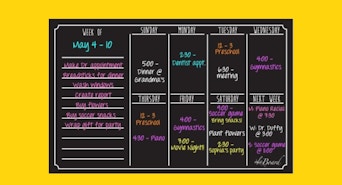 WEEK OF
May 4 - 10
Make Dr appointment
Breadsticks for dinner
Wash Windows
Create report
Buy flowers
Buy soccer snacks
Wrap gift for party
SUNDAY
5:00 -
Dinner @
Grandma's
MONDAY
2:30 -
Dentist appt.
TUESDAY
12 - 3
Preschool
6:30 -
meeting
WEDNESDAY
4:00 -
Gymnastics
THURSDAY
12 - 3
Preschool
4:30 - Piano
FRIDAY
4:00 -
Gymnastics
3:00 -
World Market
SATURDAY
Soccer game
Bring snacks
Plant flowers
2:30 -
Sophia's party
NEXT WEEK
M: Piano Recital
@ 3:30
W: Dr. Duffy
@ 3:00
S: Soccer game
@ 8:00